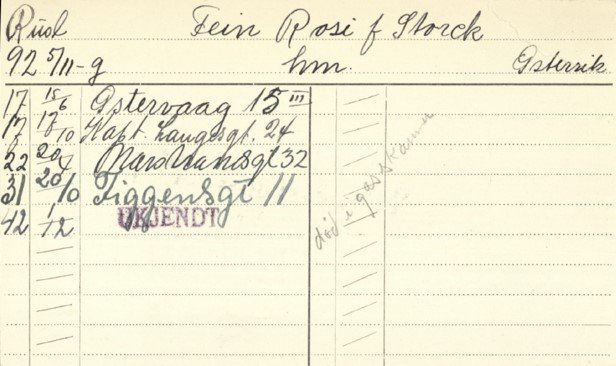 Rusl Fein Rosi f Storck
92 5/11-g hm. Østerrik
17 15/6 Østervaag 15 III
17 17/10 Kapt. Langesgt. 24
22 20/4 32
31 20/10 Tiggensgt 11
42 1/12 UKJENDT
død i gasskammer